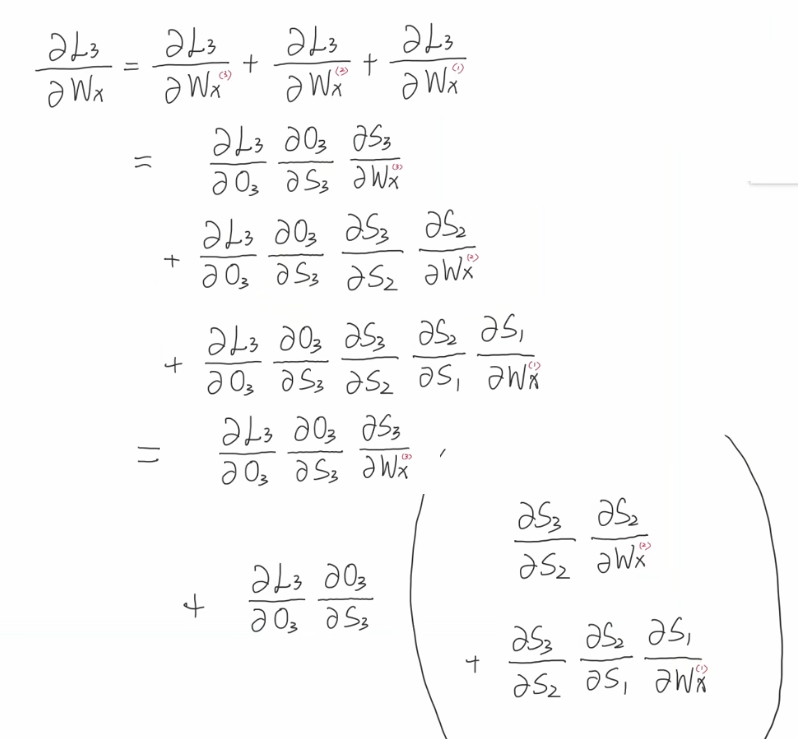 ∂L₃/∂Wₓ = ∂L₃/∂Wₓ⁽³⁾ + ∂L₃/∂Wₓ⁽²⁾ + ∂L₃/∂Wₓ⁽¹⁾
= ∂L₃/∂O₃ ∂O₃/∂S₃ ∂S₃/∂Wₓ⁽³⁾
+ ∂L₃/∂O₃ ∂O₃/∂S₃ ∂S₃/∂S₂ ∂S₂/∂Wₓ⁽²⁾
+ ∂L₃/∂O₃ ∂O₃/∂S₃ ∂S₃/∂S₂ ∂S₂/∂S₁ ∂S₁/∂Wₓ⁽¹⁾
= ∂L₃/∂O₃ ∂O₃/∂S₃ ∂S₃/∂Wₓ⁽³⁾
+ ∂L₃/∂O₃ ∂O₃/∂S₃ ( ∂S₃/∂S₂ ∂S₂/∂Wₓ⁽²⁾
+ ∂S₃/∂S₂ ∂S₂/∂S₁ ∂S₁/∂Wₓ⁽¹⁾ )